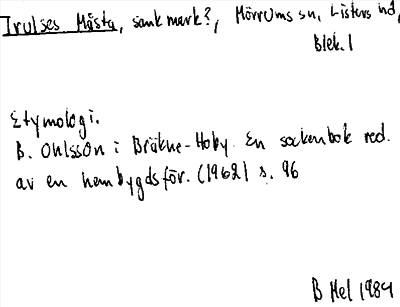 Trulses Måsta, sank mark?, Mörrums sn, Listers hd,
Blek. l
Etymologi.
B. Ohlsson i Bräkne-Hoby. En sockenbok red.
av en hembygdsför. (1962) s. 96
B Hel 1984